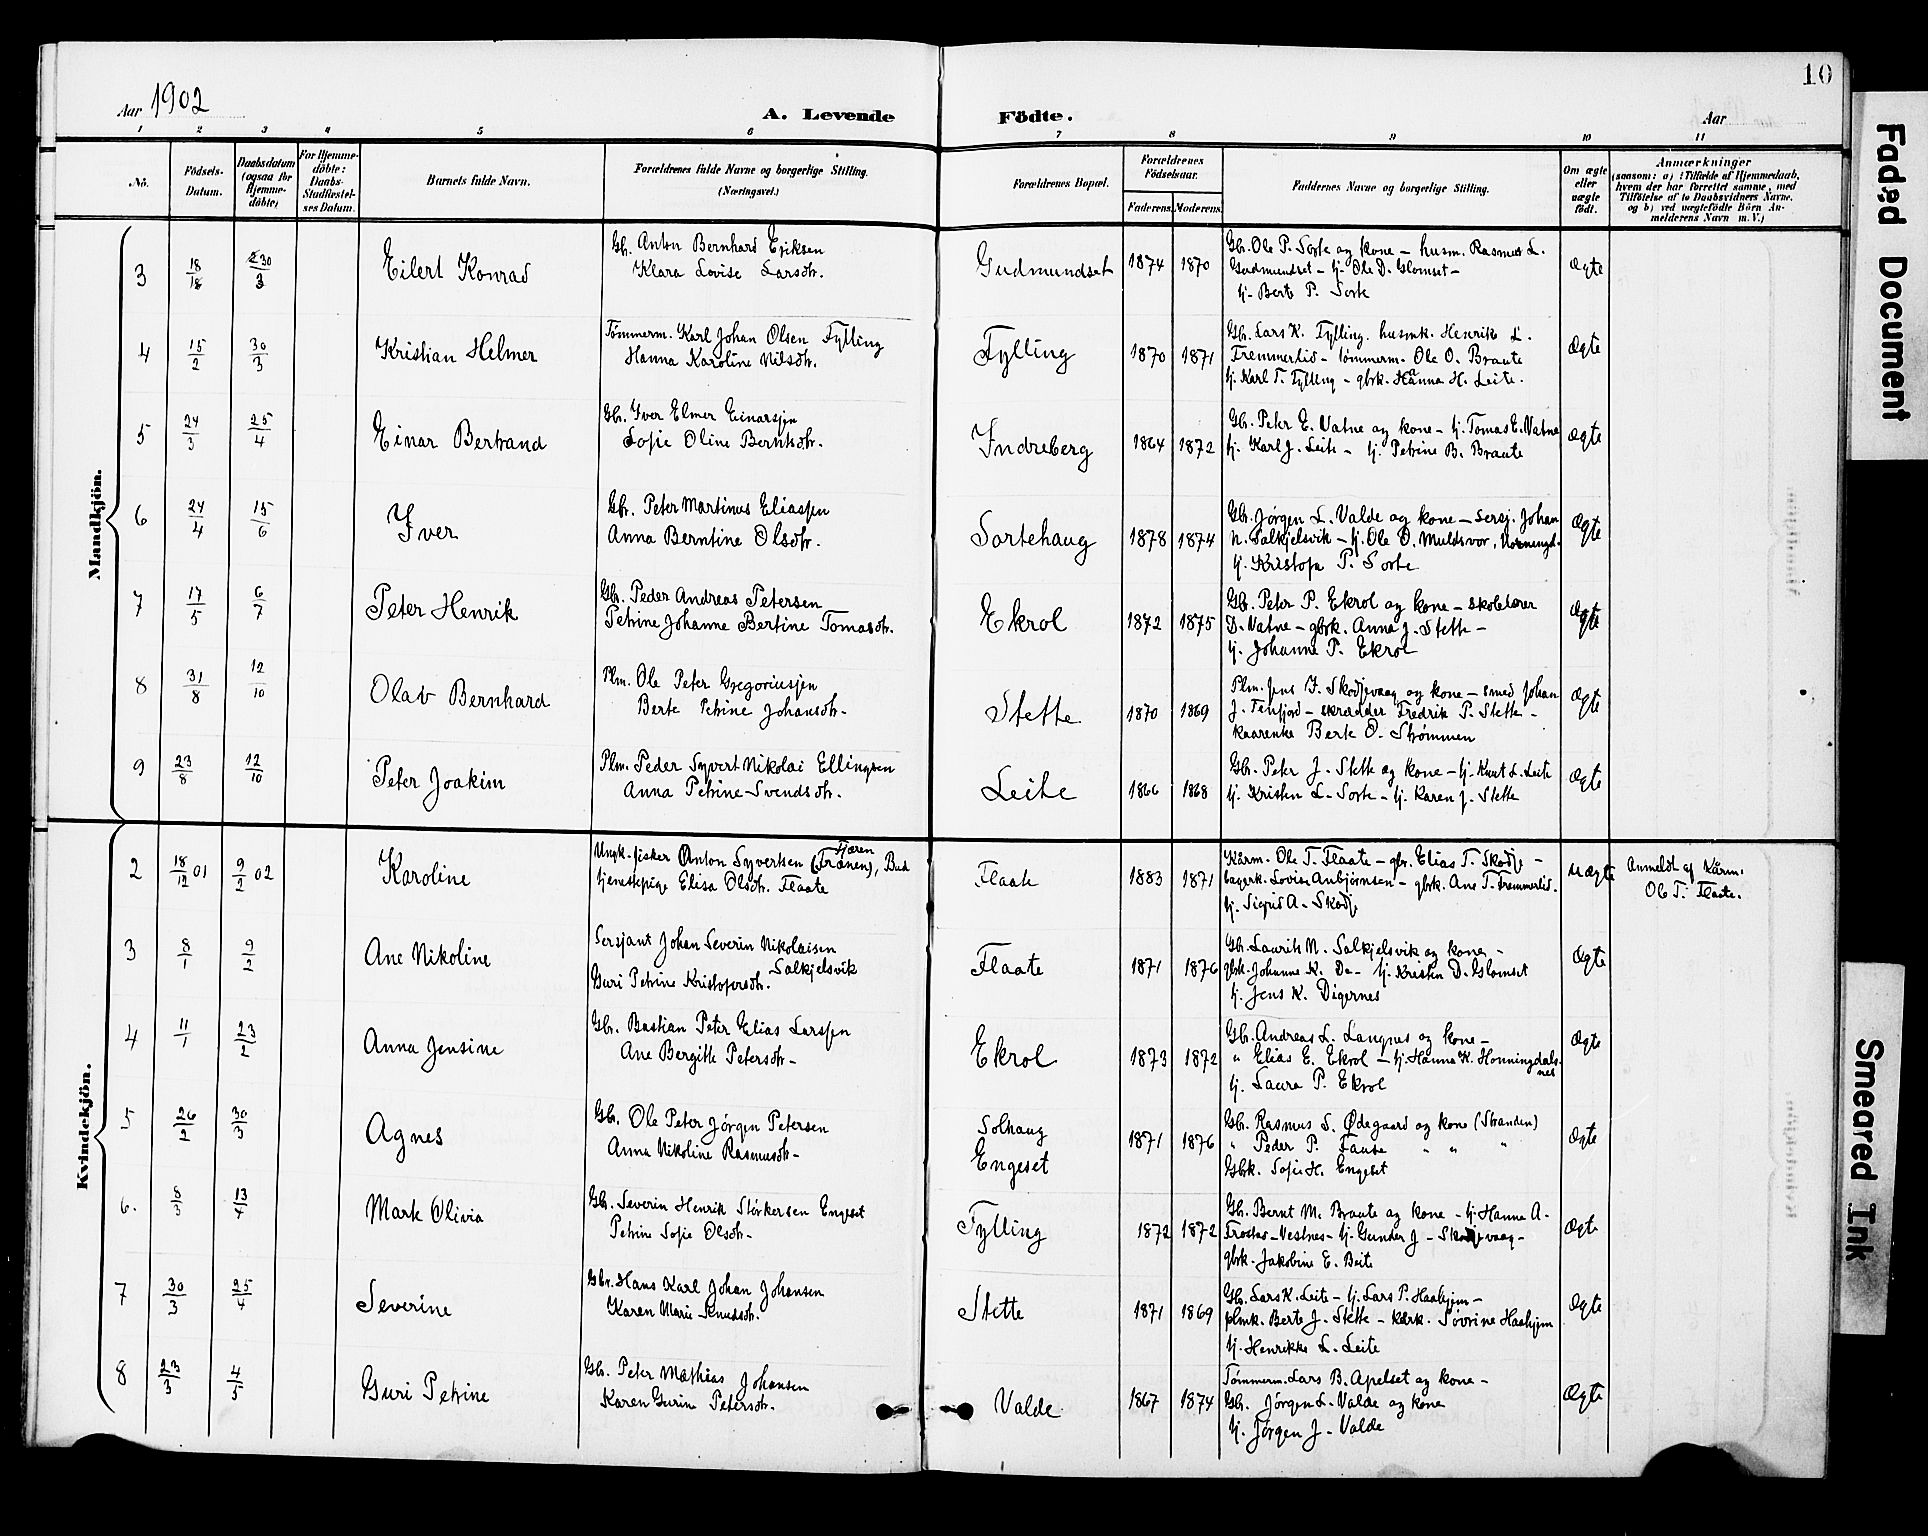 Aar 1902
A. Levende Födte.
Aar
10
1 2 3 4 5 6 7 8 9 10 11
No.
Födsels-Datum.
Daabsdatum (ogsaa for Hjemme-döbte)
For Hjemme-döbte: Daabs-Stadfæstel-ses Datum.
Barnets fulde Navn.
Forældrenes fulde Navne og borgerlige Stilling. (Næringsvei.)
Forældrenes Bopæl.
Forældrenes Födselsaar.
Faderens. Moderens.
Faddernes Navne og borgerlige Stilling.
Om ægte eller uægte födt.
Anmærkninger
(saasom: a) i Tilfælde af Hjemmedaab, hvem der har forrettet samme, med Tilföielse af to Daabsvidners Navne. og b) ved uægtefödte Börn An-melderens Navn m. V.)
Mandkjön.
3 18/12 30/3 Eilert Konrad
Gb. Anton Bernhard Eriksen
Klara Lovise Larsdtr.
Gudmundset 1874 1870
Gb. Ole P. Sorte og kone – husm. Rasmus L.
Gudmundset – tj. Ole D. Glomset –
tj. Berte P. Sorte
Ægte
4 15/2 30/3 Kristian Helmer
Tømmerm. Karl Johan Olsen Fylling
Hanna Karoline Nilsdtr.
Fylling 1870 1871
Gb. Lars K. Fylling. husmk. Henrike L.
Fremmerlid – tømmerm. Ole O. Braute
tj. Karl T. Fylling – gbrk. Hanna H. Leite.
Ægte
5 24/3 25/4 Einar Bertrand
Gb. Yver Elmer Einarsen
Sofie Oline Berntsdtr.
Indreberg 1864 1872
Gb. Peter E. Vatne og kone – tj. Tomas E. Vatne
tj. Karl J. Leite – tj. Petrine B. Braute
Ægte
6 24/4 15/6 Yver
Gbr. Peter Martinus Eliassen
Anna Berntine Olsdtr.
Sortehaug 1878 1874
Gb. Jørgen L. Valde og kone – Sersj. Johan
N. Salkjelsvik – tj. Ole O. Muldsvor,
tj. Kristofa P. Sorte
Ægte
7 17/5 6/7 Peter Henrik
Gbr. Peder Andreas Petersen
Petrine Johanne Bertine Tomasdtr.
Ekrol 1872 1875
Gb. Peter P. Ekrol og kone – skolelærer
D. Vatne – gbrk. Anna J. Stette –
tj. Johanne P. Ekrol
Ægte
8 31/8 12/10 Olav Bernhard
Plm. Ole Peter Gregoriusen
Berte Petrine Johansdtr.
Stette 1870 1869
Plm. Jens I. Skodjevaag og kone – smed Johan
J. Tenfjord – skrædder Fredrik P. Stette –
kaarenke Berte O. Strømmen
Ægte
9 23/8 12/10 Peter Joakim
Plm. Peder Syvert Nikolai Ellingsen
Anna Petrine Svendsdtr.
Leite 1866 1868
Gb. Peter J. Stette og kone – tj. Knut L. Leite
tj. Kristen L. Sorte – tj. Karen J. Stette
Ægte
Kvindekjön.
2 18/12 01 9/2 02 Karoline
Ungk. fisker Anton Syvertsen (Tranen) Tjæren, Bud
tjenestepige Elisa Olsdtr. Flaate
Flaate 1883 1871
Kårm. Ole T. Flaate – gbr. Elias T. Skodje –
bagerk. Lovise Anbjørnsen – gbrk. Ane T. Fremmerlid.
tj. Sigrid A. Skodje
Uægte
Anmeldt af Kårm.
Ole T. Flaate.
3 8/1 9/2 Ane Nikoline
Sersjant Johan Severin Nikolaisen
Salkjelsvik
Guri Petrine Kristofersdtr.
Flaate 1871 1876
Gb. Laurits N. Salkjelsvik og kone –
gbrk. Johanne K. Do – tj. Kristen D. Glomset
tj. Jens K. Digernes
Ægte
4 11/1 23/2 Anna Jensine
Gbr. Bastian Peter Elias Larssen
Ane Bergitte Petersdtr.
Ekrol 1873 1872
Gb. Andreas L. Langnes og kone –
" Elias E. Ekrol – tj. Hanna K. Honningdals-
nes
tj. Laura P. Ekrol
Ægte
5 26/2 30/3 Agnes
Gb. Ole Peter Jørgen Petersen
Anna Nikoline Rasmusdtr.
Solhaug
Engeset 1871 1876
Gb. Rasmus S. Ødegaard og kone (Stranden)
" Peder P. Fause " " "
Gbrk. Sofie H. Engeset
Ægte
6. 8/3 13/4 Marte Olivia
Gb. Severin Henrik Størkersen Engeset
Petrine Sofie Olsdtr.
Fylling 1872 1872
Gb. Bernt M. Braute og kone – tj. Hanna A.
Frostad – Vestnes – tj. Gunder J – Skodjevaag –
gbrk. Jakobine E. Beite
Ægte
7 30/3 25/4 Severine
Gbr. Hans Karl Johan Johansen
Karen Marie
Stette 1871 1869
Gb. Lars K. Leite – tj. Lars P. Haahjem –
plmk. Berte J. Stette – Kårk. Søvrine Haahjem
tj. Henrikke L. Leite
Ægte
8 23/3 4/5 Guri Petrine
Gb. Peter Mathias Johansen
Karen Gurine Petersdtr.
Valde 1867 1874
Tømmerm. Lars B. Apelset og kone –
Gb. Jørgen L. Valde og kone
tj. Jørgen J. Valde
Ægte
Faded Document
Smeared Ink